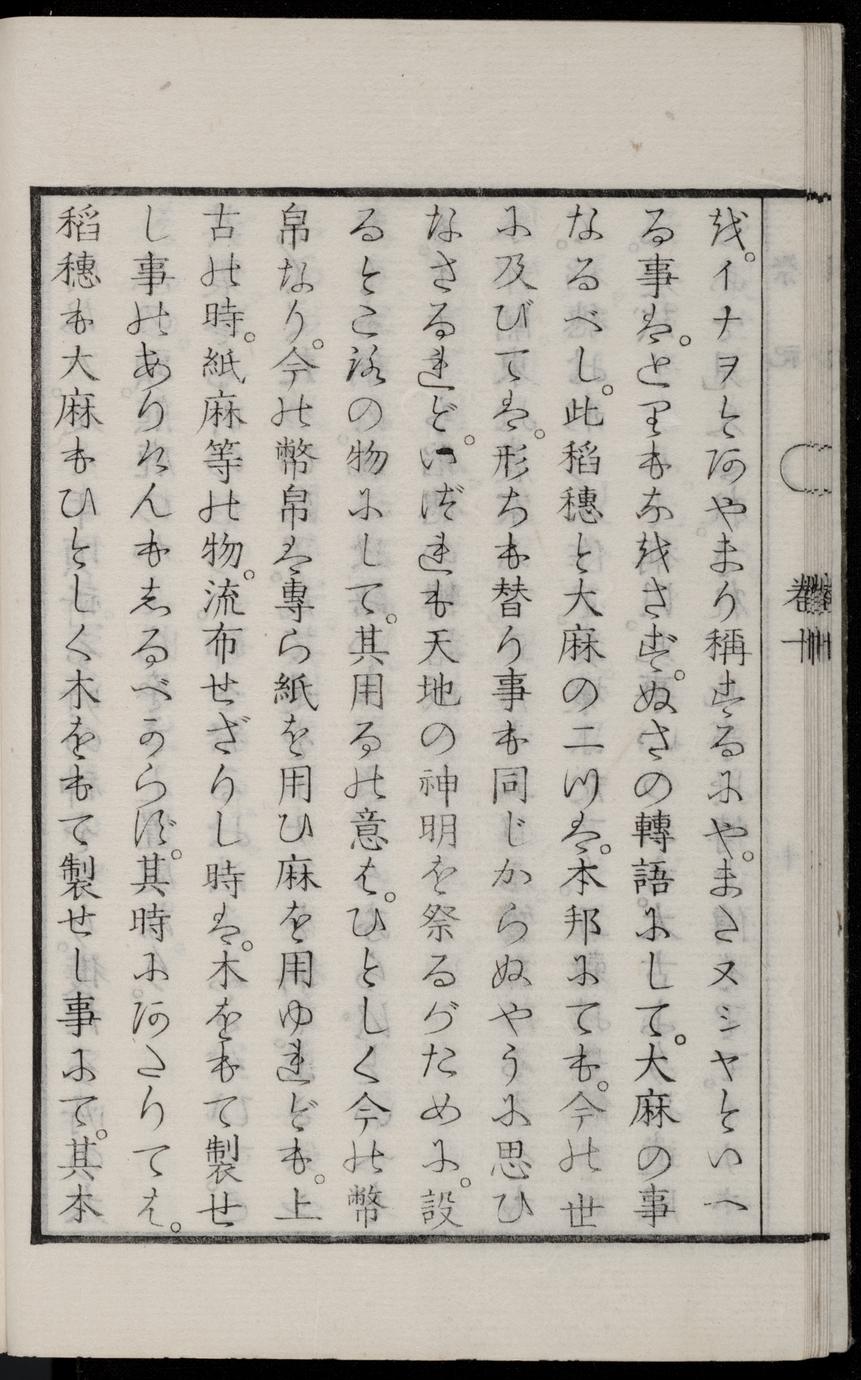 越。イナヲとあやまり稱するにや。またヌシヤといへ
る事は。とりもなをさず。ぬさの轉語にして。大麻の事
なるべし。此稻穗と大麻の二つは。本邦にても。今の世
に及びては。形ちも替り事も同じからぬやうに思ひ
なさるれど。いづれも天地の神明を祭るがために。設
るところの物にして。其用るの意は。ひとしく今の幣
帛なり。今の幣帛は專ら紙を用ひ麻を用ゆれども。上
古の時。紙麻等の物。流布せざりし時は。木をもて製せ
し事のありけんもしるべからず。其時にあたりては。
稻穗も大麻もひとしく木をもて製せし事にて。其本
卷十